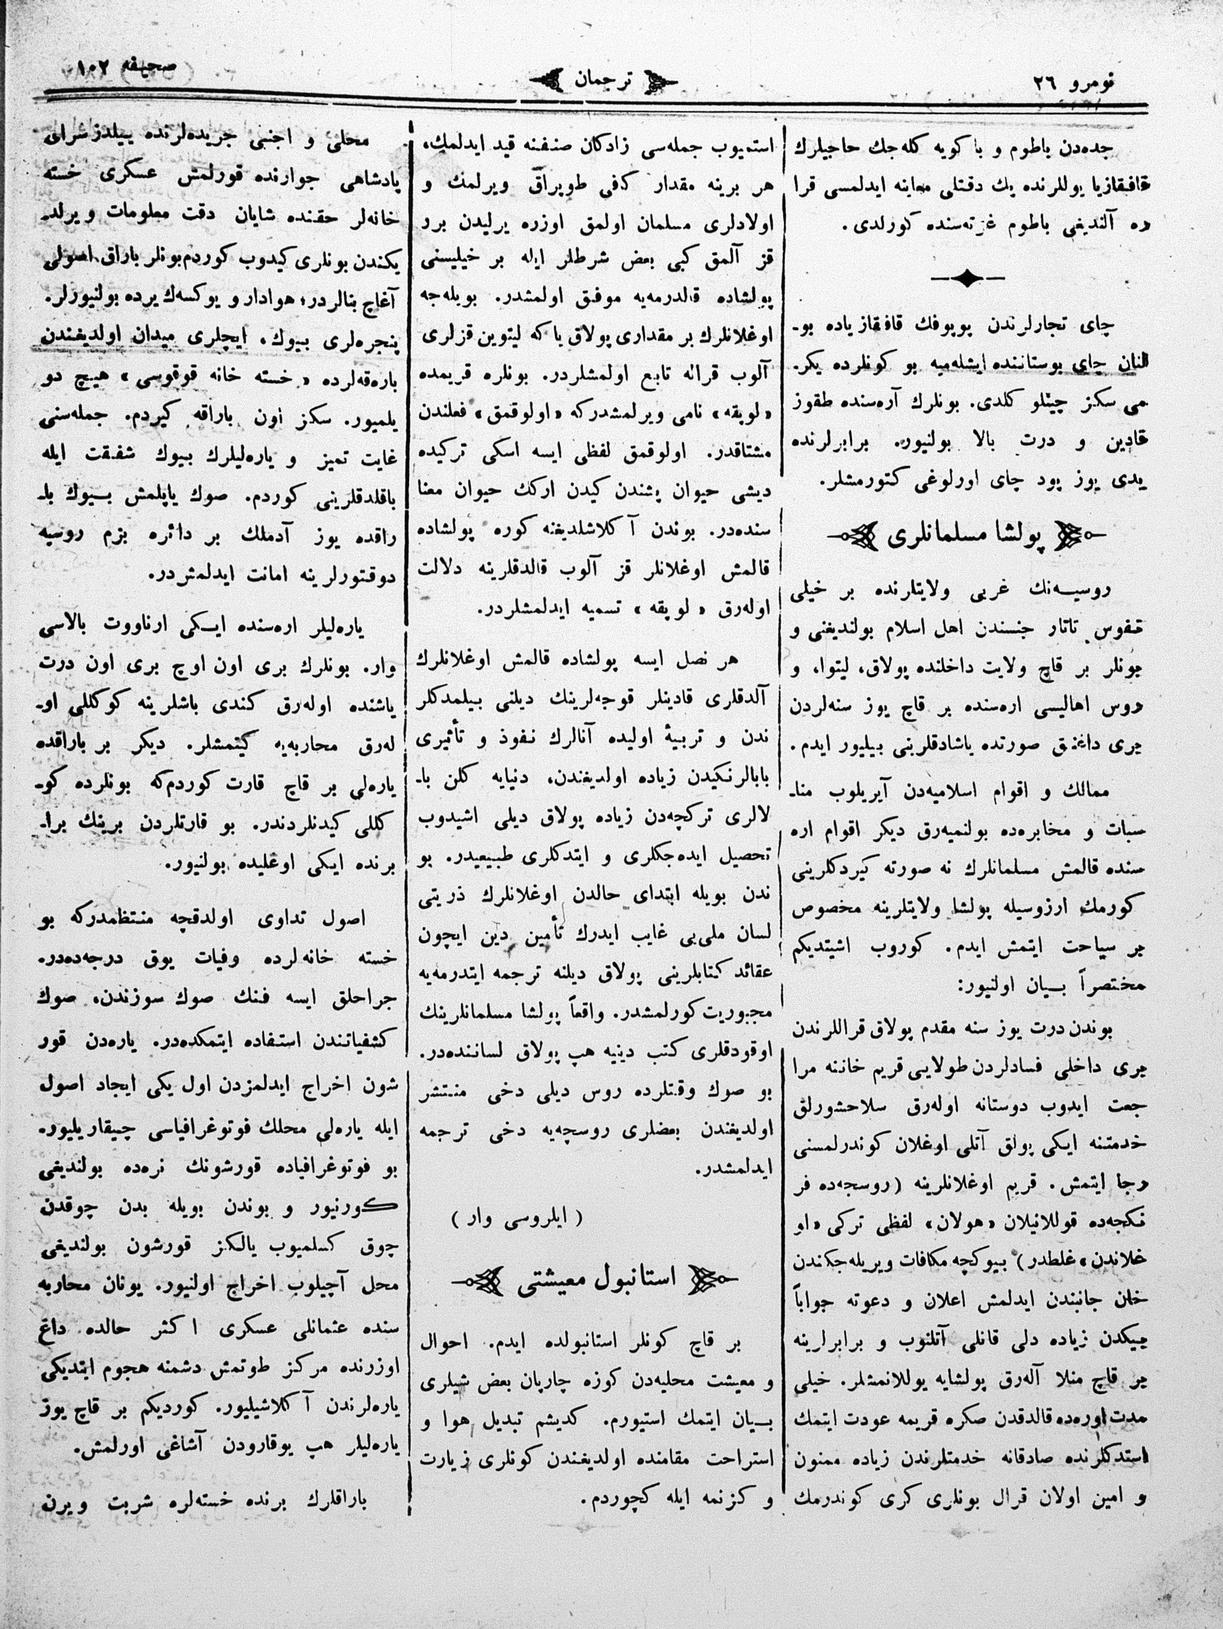 نومرو ٢٦
ترجمان
صحیفه ١٠٢
جده‌دن باطوم و باكویه كله‌جك حاجیلرك
قافقازیا یوللرنده یك دقتلی معاینه ایدلمسی قرا
ره آلندیغی باطوم غزته‌سنده كورلدی.
چای تجارلرندن پوپوفك قافقازیاده بو-
لنان چای بوستاننده ایشله‌میه بو كونلرده یكر-
می سكز چیتلو كلدی. بونلرك آره‌سنده طقوز
قادین و درت بالا بولنیور. برابرلرنده
یدی یوز پود چای اورلوغی كتورمشلر.
پولشا مسلمانلری
روسیه‌نك غربی ولایتلرنده بر خیلی
نفوس تاتار جنسندن اهل اسلام بولندیغنی و
بونلر بر قاچ ولایت داخلنده پولاق، لیتوا، و
روس اهالیسی اره‌سنده بر قاچ یوز سنه‌لردن
بری داغنق صورتده یاشادقلرینی بیلیور ایدم.
ممالك و اقوام اسلامیه‌دن آیریلوب منا-
سبات و مخابره‌ده بولنمیه‌رق دیكر اقوام اره
سنده قالمش مسلمانلرك نه صورته كیردكلرینی
كورمك ارزوسیله پولشا ولایتلرینه مخصوص
بر سیاحت ایتمش ایدم. كوروب اشیتدیكم
مختصراً بیان اولنیور:
بوندن درت یوز سنه مقدم پولاق قراللرندن
بری داخلی فسادلردن طولایی قریم خاننه مرا
جعت ایدوب دوستانه اوله‌رق سلاحشورلق
خدمتنه ایكی پولق آتلی اوغلان كوندرلمسنی
رجا ایتمش. قریم اوغلانلرینه (روسجه‌ده فر
نكجه‌ده قوللانیلان «هولان» لفظی تركی «او
غلاندن» غلطدر) بیوكچه مكافات ویریله‌جكندن
خان جانبندن ایدلمش اعلان و دعوته جواباً
بیكدن زیاده دلی قانلی آتلنوب و برابرلرینه
بر قاچ منلا آله‌رق پولشایه یوللانمشلر. خیلی
مدت اوره‌ده قالدقدن صكره قریمه عودت ایتمك
استدكلرنده صادقانه خدمتلرندن زیاده ممنون
و امین اولان قرال بونلری كری كوندرمك
استمیوب جمله‌سی زادكان صنفنه قید ایدلمك،
هر برینه مقدار كافی طوپراق ویرلمك و
اولادلری مسلمان اولمق اوزره یرلیدن برر
قز آلمق كبی بعض شرطلر ایله بر خیلیسنی
پولشاده قالدرمه‌یه موفق اولمشدر. بویله‌جه
اوغلانلرك بر مقداری پولاق یاكه لیتوین قزلری
آلوب قراله تابع اولمشلردر. بونلره قریمده
«لوپقه» نامی ویرلمشدركه «اولوقمق» فعلندن
مشتاقدر. اولوقمق لفظی ایسه اسكی تركیده
دیشی حیوان پشندن كیدن اركك حیوان معنا
سنده‌در. بوندن آكلاشلدیغنه كوره پولشاده
قالمش اوغلانلر قز آلوب قالدقلرینه دلالت
اوله‌رق «لوپقه» تسمیه ایدلمشلردر.
هر نصل ایسه پولشاده قالمش اوغلانلرك
آلدقلری قادینلر قوجه‌لرینك دیلنی بیلمدكلر
ندن و تربیۀ اولیده آنالرك نفوذ و تأثیری
بابالرنكیدن زیاده اولدیغندن، دنیایه كلن با-
لالری تركچه‌دن زیاده پولاق دیلی اشیدوب
تحصیل ایده‌جكلری و ایتدكلری طبیعیدر. بو
ندن بویله ابتدای حالدن اوغلانلرك ذریتی
لسان ملی‌یی غایب ایدرك تأمین دین ایچون
عقائد كتابلرینی پولاق دیلنه ترجمه ایتدرمه‌یه
مجبوریت كورلمشدر. واقعاً پولشا مسلمانلرینك
اوقودقلری كتب دینیه هپ پولاق لساننده‌در.
بو صوك وقتلرده روس دیلی دخی منتشر
اولدیغندن بعضلری روسچه‌یه دخی ترجمه
ایدلمشدر.
(ایلروسی وار)
استانبول معیشتی
بر قاچ كونلر استانبولده ایدم. احوال
و معیشت محلیه‌دن كوزه چارپان بعض شیلری
بیان ایتمك استیورم. كدیشم تبدیل هوا و
استراحت مقامنده اولدیغندن كونلری زیارت
و كزنمه ایله كچوردم.
محلی و اجنبی جریده‌لرنده ییلدز سرای
پادشاهی جوارنده قورلمش عسكری خسته
خانه‌لر حقنده شایان دقت معلومات ویرلد-
یكندن بونلری كیدوب كوردم بونلر باراق اصولی
آغاچ بنالردر؛ هوادار و یوكسه‌ك یرده بولنیورلر.
پنجره‌لری بیوك، ایچلری میدان اولدیغندن
باره‌قه‌لرده «خسته خانه قوقوسی» هیچ دو
یلمیور. سكز اون باراقه كیردم. جمله‌سنی
غایت تمیز و یاره‌لیلرك بیوك شفقت ایله
باقلدقلرینی كوردم. صوك یاپلمش بیوك با-
راقده یوز آدملك بر دائره بزم روسیه
دوقتورلرینه امانت ایدلمش‌در.
یاره‌لیلر اره‌سنده ایكی ارناووت بالاسی
وار. بونلرك بری اون اوچ بری اون درت
یاشنده اوله‌رق كندی باشلرینه كوكللی او-
له‌رق محاربه‌یه كیتمشلر. دیكر بر باراقده
یاره‌لی بر قاچ قارت كوردم‌كه بونلرده كو-
كللی كیدنلردندر. بو قارتلردن برینك برا-
برنده ایكی اوغلیده بولنیور.
اصول تداوی اولدقچه منتظمدركه بو
خسته خانه‌لرده وفیات یوق درجه‌ده‌در.
جراحلق ایسه فنك صوك سوزندن، صوك
كشفیاتندن استفاده ایتمكده‌در. یاره‌دن قور
شون اخراج ایدلمزدن اول یكی ایجاد اصول
ایله یاره‌لی محلك فوتوغرافیاسی چیقاریلیور.
بو فوتوغرافیاده قورشونك نره‌ده بولندیغی
كورنیور و بوندن بویله بدن چوقدن
چوق كسلمیوب یالكز قورشون بولندیغی
محل آچیلوب اخراج اولنیور. یونان محاربه
سنده عثمانلی عسكری اكثر حالده داغ
اوزرنده مركز طوتمش دشمنه هجوم ایتدیكی
یاره‌لرندن آكلاشیلیور. كوردیكم بر قاچ یوز
یاره‌لیلر هپ یوقارودن آشاغی اورلمش.
باراقلرك برنده خسته‌لره شربت ویرن